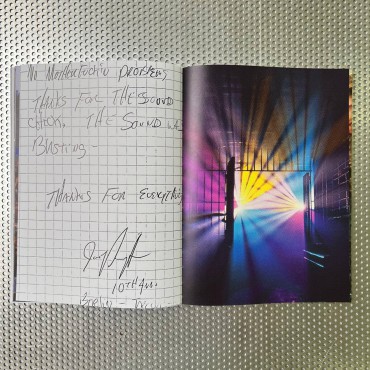 No Motherfuckin problems
THANKS FOR THE SOUND
CHECK. THE SOUND
BLASTING -
THANKS FOR EVERYTHING
10TH AUG.
BERLIN -